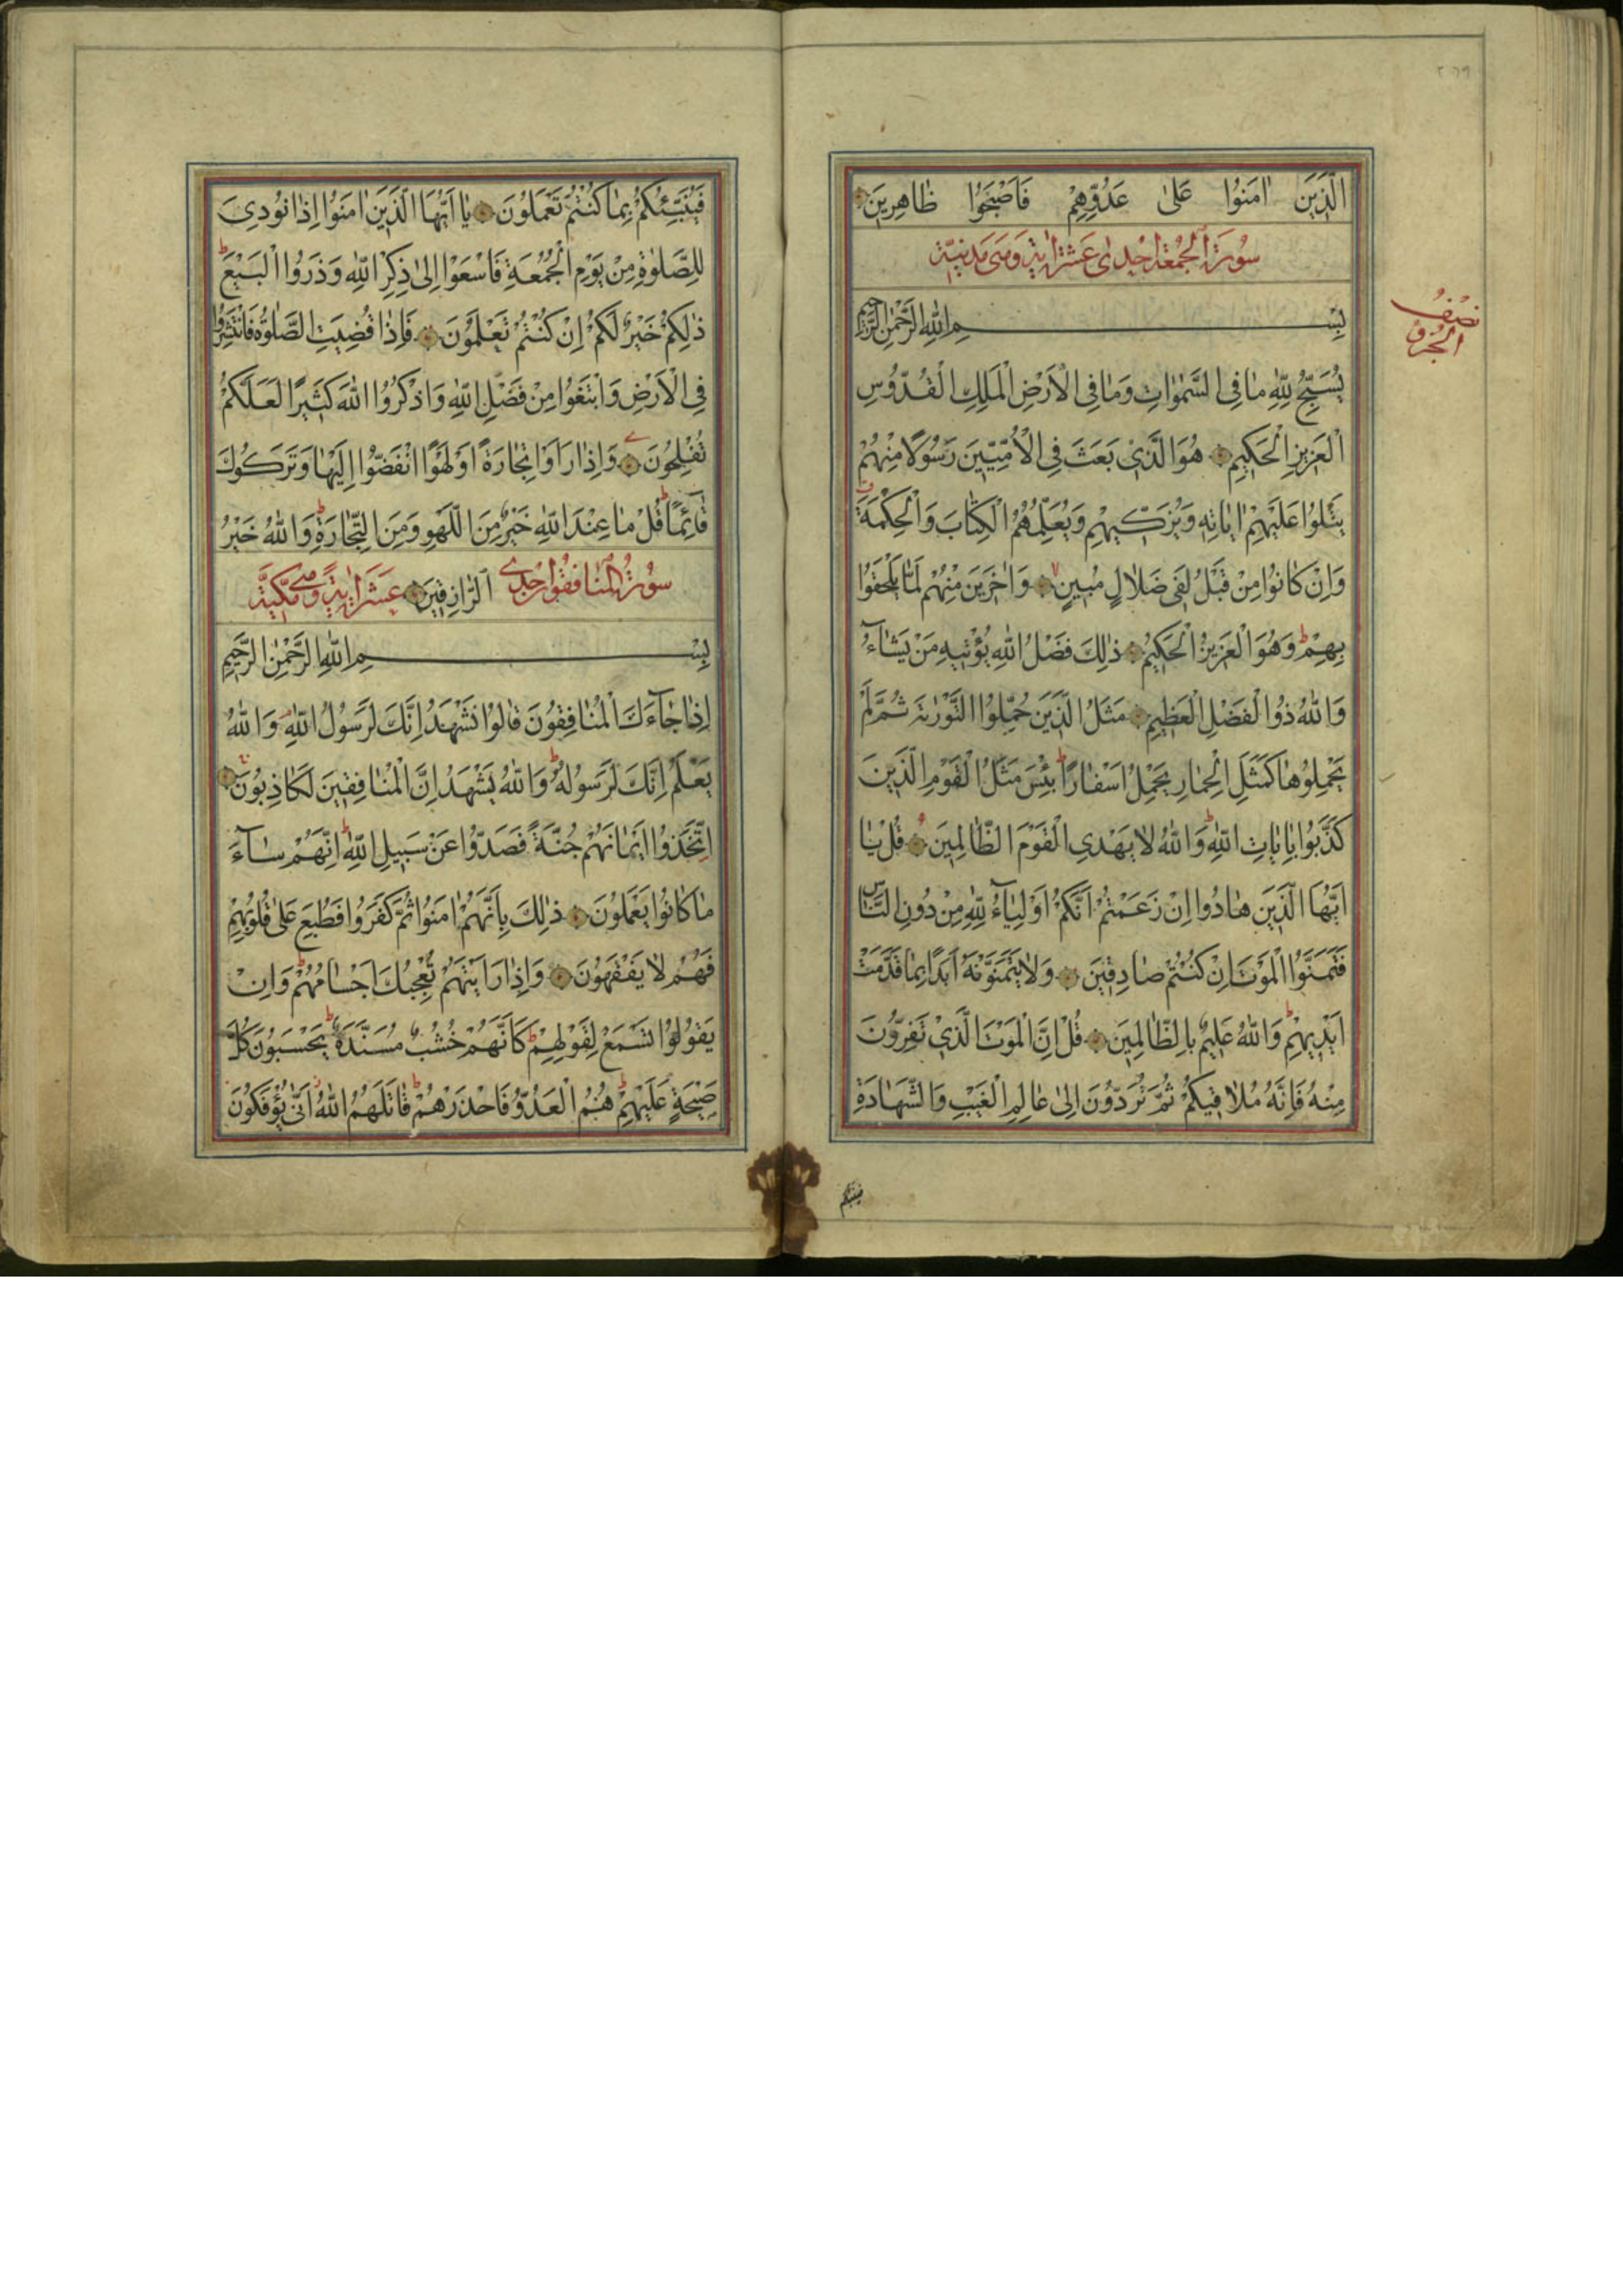 ٢٦٩
الَّذِينَ اٰمَنُوا عَلٰى عَدُوِّهِمْ فَاَصْبَحُوا ظَاهِرِينَ
سُورَةُ الْجُمُعَةِ اِحْدٰى عَشَرَ اٰيَةً وَهِىَ مَدَنِيَّةٌ
بِسْمِ اللّٰهِ الرَّحْمٰنِ الرَّحِيمِ
نِصْفُ
الْجُزْءِ
يُسَبِّحُ لِلّٰهِ مَا فِى السَّمٰوَاتِ وَمَا فِى الْاَرْضِ الْمَلِكِ الْقُدُّوسِ
الْعَزِيزِ الْحَكِيمِ هُوَ الَّذِى بَعَثَ فِى الْاُمِّيِّينَ رَسُولًا مِنْهُمْ
يَتْلُوا عَلَيْهِمْ اٰيَاتِهِ وَيُزَكِّيهِمْ وَيُعَلِّمُهُمُ الْكِتَابَ وَالْحِكْمَةَ
وَاِنْ كَانُوا مِنْ قَبْلُ لَفِى ضَلَالٍ مُبِينٍ وَاٰخَرِينَ مِنْهُمْ لَمَّا يَلْحَقُوا
بِهِمْ وَهُوَ الْعَزِيزُ الْحَكِيمُ ذٰلِكَ فَضْلُ اللّٰهِ يُؤْتِيهِ مَنْ يَشَآءُ
وَاللّٰهُ ذُوا الْفَضْلِ الْعَظِيمِ مَثَلُ الَّذِينَ حُمِّلُوا التَّوْرٰيةَ ثُمَّ لَمْ
يَحْمِلُوهَا كَمَثَلِ الْحِمَارِ يَحْمِلُ اَسْفَارًا بِئْسَ مَثَلُ الْقَوْمِ الَّذِينَ
كَذَّبُوا بِاٰيَاتِ اللّٰهِ وَاللّٰهُ لَا يَهْدِى الْقَوْمَ الظَّالِمِينَ قُلْ يَا
اَيُّهَا الَّذِينَ هَادُوا اِنْ زَعَمْتُمْ اَنَّكُمْ اَوْلِيَآءُ لِلّٰهِ مِنْ دُونِ النَّاسِ
فَتَمَنَّوُا الْمَوْتَ اِنْ كُنْتُمْ صَادِقِينَ وَلَا يَتَمَنَّوْنَهُ اَبَدًا بِمَا قَدَّمَتْ
اَيْدِيهِمْ وَاللّٰهُ عَلِيمٌ بِالظَّالِمِينَ قُلْ اِنَّ الْمَوْتَ الَّذِى تَفِرُّونَ
مِنْهُ فَاِنَّهُ مُلَاقِيكُمْ ثُمَّ تُرَدُّونَ اِلٰى عَالِمِ الْغَيْبِ وَالشَّهَادَةِ
فَيُنَبِّئُكُمْ
فَيُنَبِّئُكُمْ بِمَا كُنْتُمْ تَعْمَلُونَ يَا اَيُّهَا الَّذِينَ اٰمَنُوا اِذَا نُودِىَ
لِلصَّلٰوةِ مِنْ يَوْمِ الْجُمُعَةِ فَاسْعَوْا اِلٰى ذِكْرِ اللّٰهِ وَذَرُوا الْبَيْعَ
ذٰلِكُمْ خَيْرٌ لَكُمْ اِنْ كُنْتُمْ تَعْلَمُونَ فَاِذَا قُضِيَتِ الصَّلٰوةُ فَانْتَشِرُوا
فِى الْاَرْضِ وَابْتَغُوا مِنْ فَضْلِ اللّٰهِ وَاذْكُرُوا اللّٰهَ كَثِيرًا لَعَلَّكُمْ
تُفْلِحُونَ وَاِذَا رَاَوْا تِجَارَةً اَوْ لَهْوًا انْفَضُّوا اِلَيْهَا وَتَرَكُوكَ
قَآئِمًا قُلْ مَا عِنْدَ اللّٰهِ خَيْرٌ مِنَ اللَّهْوِ وَمِنَ التِّجَارَةِ وَاللّٰهُ خَيْرُ
سُورَةُ الْمُنَافِقُونَ اِحْدٰى الرَّازِقِينَ عَشَرَ اٰيَةً وَهِىَ مَكِّيَّةٌ
بِسْمِ اللّٰهِ الرَّحْمٰنِ الرَّحِيمِ
اِذَا جَآءَكَ الْمُنَافِقُونَ قَالُوا نَشْهَدُ اِنَّكَ لَرَسُولُ اللّٰهِ وَاللّٰهُ
يَعْلَمُ اِنَّكَ لَرَسُولُهُ وَاللّٰهُ يَشْهَدُ اِنَّ الْمُنَافِقِينَ لَكَاذِبُونَ
اِتَّخَذُوا اَيْمَانَهُمْ جُنَّةً فَصَدُّوا عَنْ سَبِيلِ اللّٰهِ اِنَّهُمْ سَآءَ
مَا كَانُوا يَعْمَلُونَ ذٰلِكَ بِاَنَّهُمْ اٰمَنُوا ثُمَّ كَفَرُوا فَطُبِعَ عَلٰى قُلُوبِهِمْ
فَهُمْ لَا يَفْقَهُونَ وَاِذَا رَاَيْتَهُمْ تُعْجِبُكَ اَجْسَامُهُمْ وَاِنْ
يَقُولُوا تَسْمَعْ لِقَوْلِهِمْ كَاَنَّهُمْ خُشُبٌ مُسَنَّدَةٌ يَحْسَبُونَ كُلَّ
صَيْحَةٍ عَلَيْهِمْ هُمُ الْعَدُوُّ فَاحْذَرْهُمْ قَاتَلَهُمُ اللّٰهُ اَنّٰى يُؤْفَكُونَ